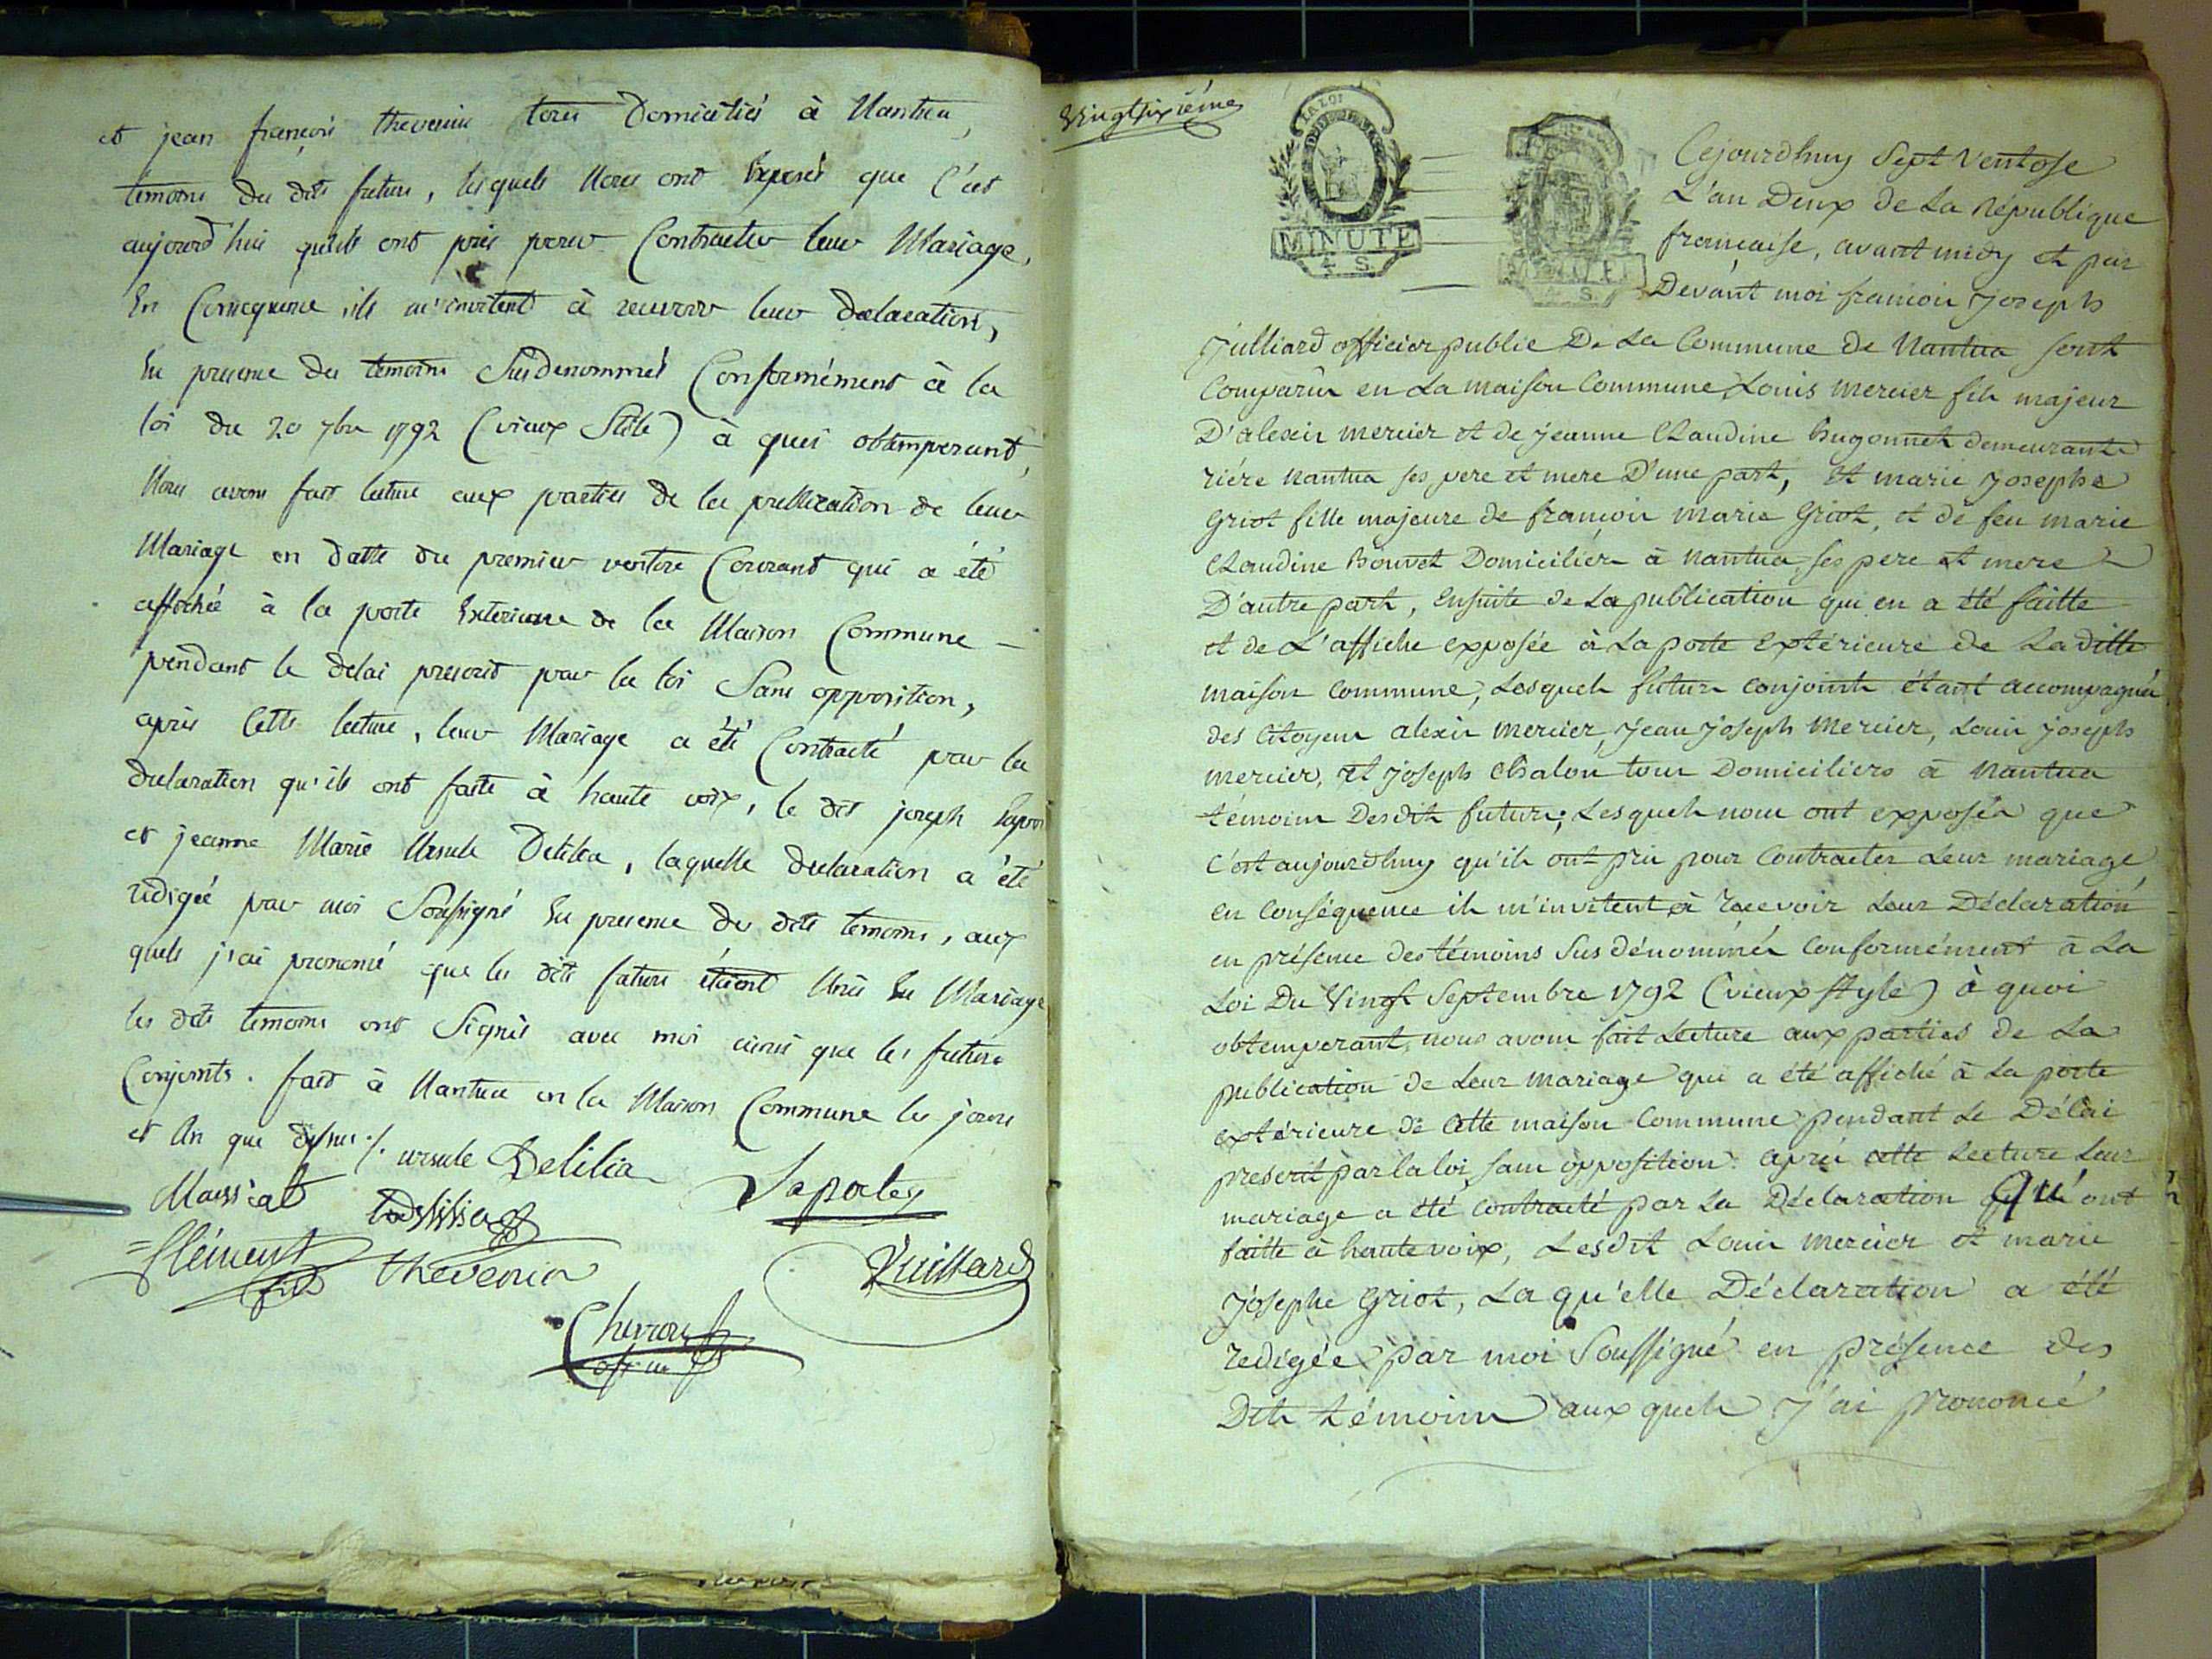 et jean françois thevenin tous Domiciliés à Nantua,
témoins des dits futurs, lesquels Nous ont Exposés que C'est
aujourd'hui qu'ils ont pris pour Contracter leur Mariage,
En Consequence ils m'invitent à recevoir leur declaration,
En presence des temoins Susdenommés Conformément à la
loi du 20 7bre 1792 (vieux Stile) à quoi obtemperant,
Nous avons fait lecture aux parties de la publication de leur
Mariage en datte du premier ventose Courant qui a été
affichée à la porte Exterieure de la Maison Commune —
pendant le delai prescrit par la loi Sans opposition,
après Cette lecture, leur Mariage a été Contracté par la
declaration qu'ils ont faite à haute voix, le dit joseph
et jeanne Marie Ursule Delilia, laquelle declaration a été
redigée par moi Soussigné En presence des dits temoins, aux
quels j'ai prononcé que les dits futurs étaient Unis En Mariage
les dits temoins ont Signés avec moi ainsi que les futurs
Conjoints. fait à Nantua en la Maison Commune les jours
et An que dessus ./. ursule Delilia
Massiat Delilia Saporley
Clément fils thevenin Juilliard
Vingtsixième
LA LOI
MINUTE
4. S.
S.
Cejourdhuy Sept Ventose
L'an Deux de La République
francaise, avant midy et par
Devant moi francois Joseph
Julliard officier public De La Commune de Nantua sont
Comparus en La maison Commune, Louis mercier fils majeur
D'alexis mercier et de jeanne Claudine hugonnet demeurants
riére Nantua ses pere et mere D'une part, Et marie Josephe
Griot fille majeure de francois marie Griot, et de feu marie
Claudine bouvet Domiciliés à Nantua, ses pere et mere
D'autre part, Ensuite de La publication qui en a été faitte
et de L'affiche exposée à La porte extérieure de La ditte
maison Commune, Lesquels futurs conjoints étant accompagnés
des Citoyens alexis mercier, Jean Joseph Mercier, Louis Joseph
mercier, et Joseph Chalon tous Domiciliers à Nantua
témoins Desdits futurs; Lesquels nous ont exposés que
C'est aujourdhuy qu'ils ont pris pour Contracter Leur mariage,
en Conséquence ils m'invitent à recevoir Leur Déclaration
en présence des témoins Susdénommés Conformément à La
Loi Du Vingt Septembre 1792 (vieux style) à quoi
obtemperant, nous avons fait Lecture aux parties de La
publication de Leur mariage qui a été affiché à La porte
extérieure de Cette maison Commune pendant Le Délai
prescrit par la loi, sans opposition. après cette Lecture Leur
mariage a été Contracté par La Déclaration Qu'ont
faitte à haute voix, Lesdit Louis mercier et marie
Josephe Griot, La qu'elle Déclaration a été
redigée par moi Soussigné en présence des
Dits témoins aux quels J'ai prononcé